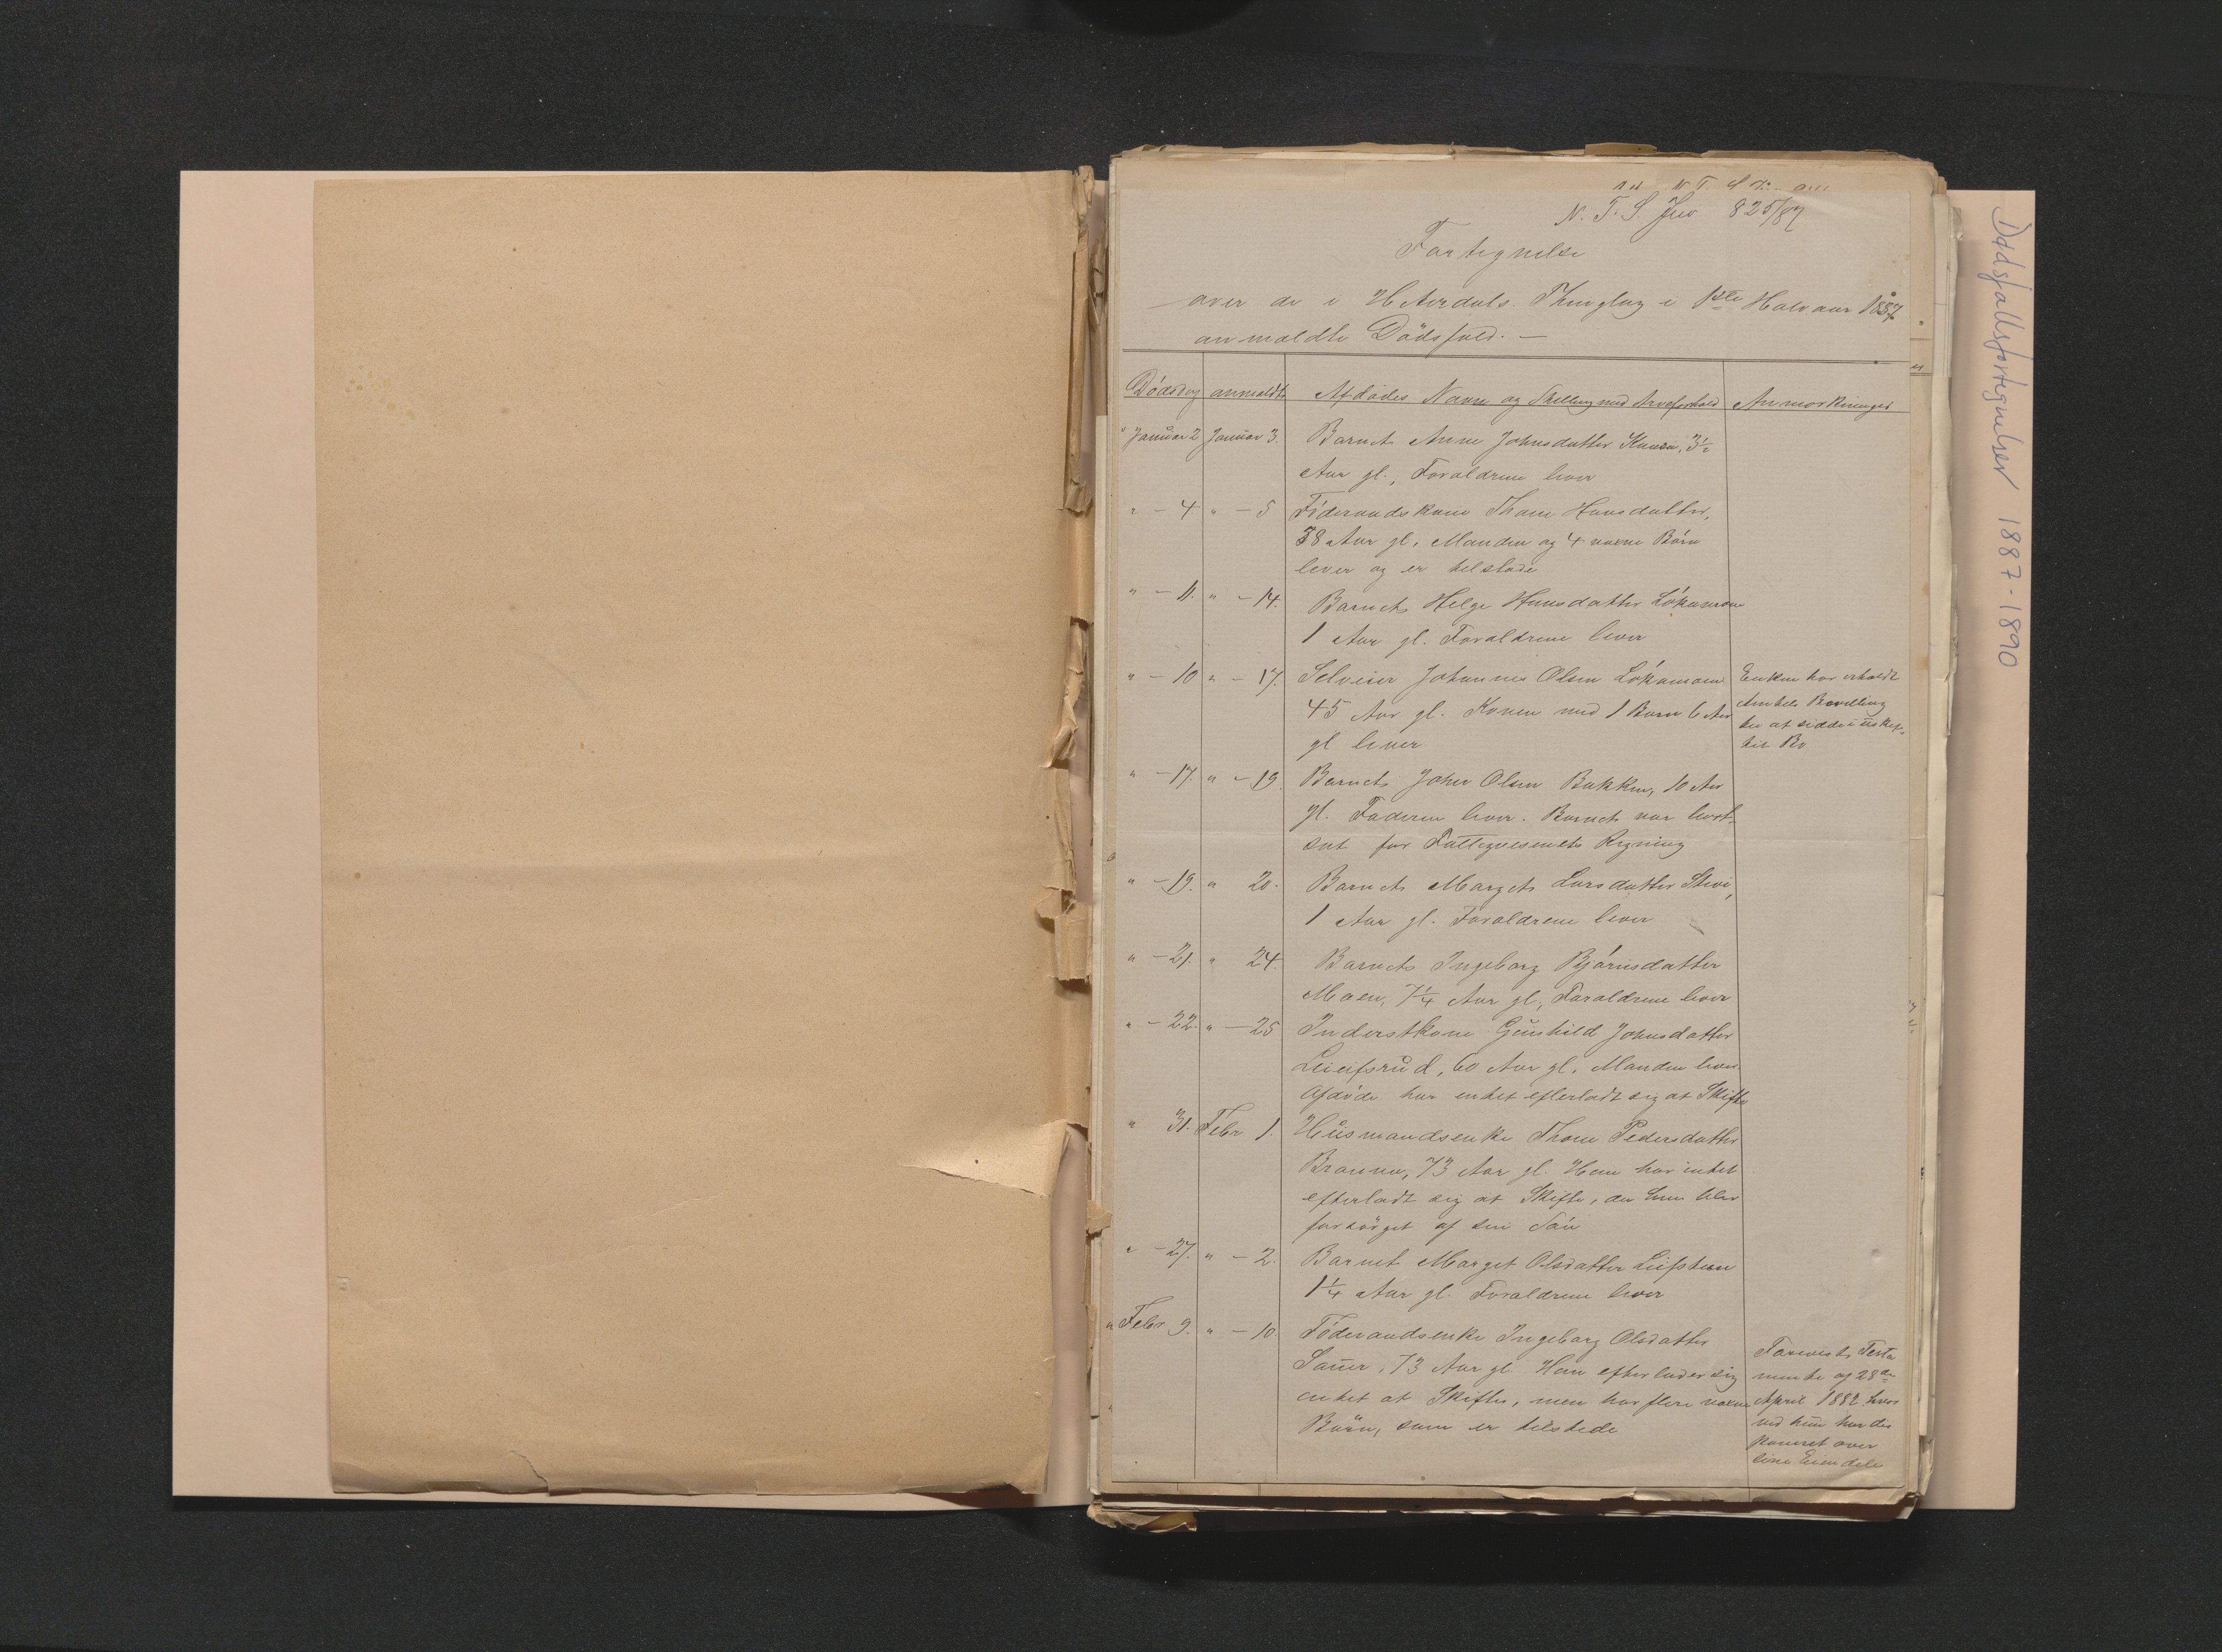 N. T. S. Jno 825/87
Fortegnelse
over de i Hiterdals Thinglag i 1ste Halvaar 1887
anmeldte Dödsfald. —
Dödsdag anmeldt Afdödes Navn og Stilling med Arveforhold Anmerkninger
Januar 2 Januar 3. Barnet Anne Johnsdatter 3½
Aar gl., Foraldrene lever
" - 4 " - 5 Föderaadskone Thone Hansdatter,
38 Aar gl. Manden og 4 voxne Börn
lever og er tilstede
" - 11. " - 14. Barnet Helge Hansdatter Lökamoen
1 Aar gl. Foraldrene lever
" - 10 " - 17. Selveier Johannes Olsen Lökamoen
45 Aar gl. Konen med 1 Barn 6 Aar
gl lever
Enken har erholdt
Amtets Bevilling
til at sidde i uskif-
tet Bo
" - 17. " - 19. Barnet John Olsen Bakken, 10 Aar
gl. Faderen lever. Barnet var bort-
sat for Fattigvesenets Regning
" - 19. " 20. Barnet Margit Larsdatter
1 Aar gl. Foraldrene lever
" - 21. " 24. Barnet Ingeborg Björnsdatter
Moen, 7¼ Aar gl., Foraldrene lever
" - 22. " - 25 Inderstkone Gunhild Johnsdatter
60 Aar gl. Manden lever
Afdöde har intet efterladt sig at Skifte
" 31. Febr 1. Husmandsenke Thone Pedersdatter
73 Aar gl. Hun har intet
efterladt sig at Skifte, da hun blev
forsörget af sin Sön
" - 27. " - 2. Barnet Marget Olsdatter
1¼ Aar gl. Foraldrene lever
" Febr 9. " - 10. Föderaadsenke Ingeborg Olsdatter
Sauer, 73 Aar gl. Hun efterlader sig
intet at Skifte, men har flere voxne
Börn, som er tilstede
Forevist Testa
mente af 28de
April 1882 hvor
ved hun har dis
poneret over
sine Eiendele
Dødsfallsfortegnelser 1887-1890